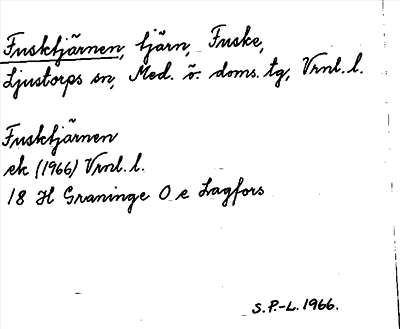 Fusktjärnen, tjärn, Fuske,
Ljustorps sn, Med. ö. doms. tg, Vrnl. l.
Fusktjärnen
ek (1966) Vrnl. l.
18 H Graninge O e Lagfors
S.P.-L. 1966.